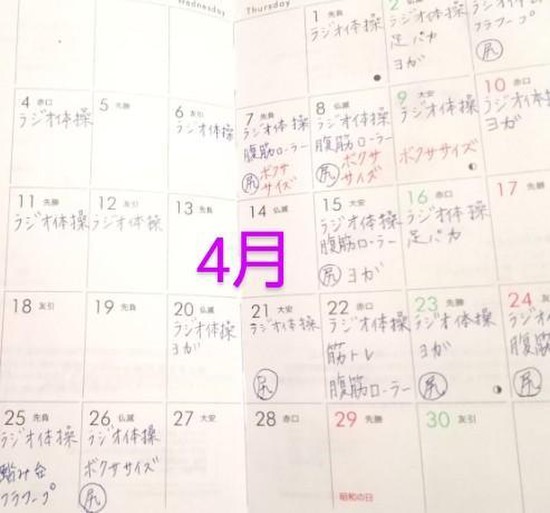 Wednesday
Thursday
1 先負
ラジオ体操
2
ラジオ体操
足パカ
ヨガ
ラジオ体操
フラフープ
尻
4 赤口
ラジオ体操
5 先勝
6 友引
ラジオ体操
7 先負
ラジオ体操
腹筋ローラー
尻 ボクサ
サイズ
8 仏滅
ラジオ体操
腹筋ローラー
尻 ボクサ
サイズ
9 大安
ラジオ体操
ボクササイズ
10 赤口
ラジオ体操
ヨガ
11 先勝
ラジオ体操
12 友引
ラジオ体操
13 先負
14 仏滅
15 大安
ラジオ体操
腹筋ローラー
尻 ヨガ
16 赤口
ラジオ体操
足パカ
17 先勝
4月
18 友引
19 先負
20 仏滅
ラジオ体操
ヨガ
21 大安
ラジオ体操
尻
22 赤口
ラジオ体操
筋トレ
腹筋ローラー
23 先勝
ラジオ体操
ヨガ
尻
24 友引
ラジオ体
腹筋
尻
25 先負
ラジオ体操
踏み台
フラフープ
26 仏滅
ラジオ体操
ボクササイズ
尻
27 大安
28 赤口
29 先勝
昭和の日
30 友引